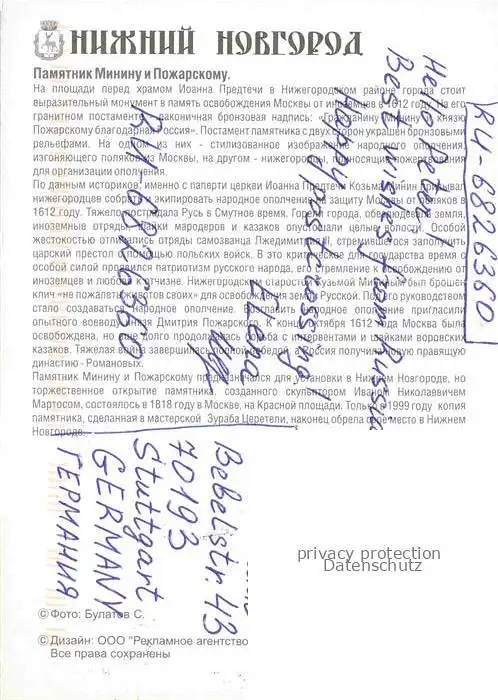 НИЖНИЙ НОВГОРОД
Памятник Минину и Пожарскому.
На площади перед храмом Иоанна Предтечи в Нижегородском районе города стоит
выразительный монумент в память освобождения Москвы от иноземцев в 1612 году. На его
гранитном постаменте лаконичная бронзовая надпись: «Гражданину Минину и князю
Пожарскому благодарная Россия». Постамент памятника с двух сторон украшен бронзовыми
рельефами. На одном из них - стилизованное изображение народного ополчения,
изгоняющего поляков из Москвы, на другом - нижегородцы, приносящие пожертвования
для организации ополчения.
По данным историков, именно с паперти церкви Иоанна Предтечи Козьма Минин призывал
нижегородцев собрать и экипировать народное ополчение на защиту Москвы от поляков в
1612 году. Тяжело страдала Русь в Смутное время. Горели города, обезлюдела земля,
иноземные отряды, шайки мародеров и казаков опустошали целые волости. Особой
жестокостью отличались отряды самозванца Лжедимитрия, стремившегося заполучить
царский престол с помощью польских войск. В это критическое для государства время с
особой силой проявился патриотизм русского народа, его стремление к освобождению от
иноземцев и любовь к отчизне. Нижегородским старостой Кузьмой Мининым был брошен
клич «не пожалеть животов своих» для освобождения земли Русской. Под его руководством
стало создаваться народное ополчение. Возглавить народное ополчение пригласили
опытного воеводу князя Дмитрия Пожарского. К концу октября 1612 года Москва была
освобождена, но еще долго продолжалась борьба с интервентами и шайками воровских
казаков. Тяжелая война завершилась полной победой, а Россия получила новую правящую
династию - Романовых.
Памятник Минину и Пожарскому предназначался для установки в Нижнем Новгороде, но
торжественное открытие памятника, созданного скульптором Иваном Николаевичем
Мартосом, состоялось в 1818 году в Москве, на Красной площади. Только в 1999 году копия
памятника, сделанная в мастерской Зураба Церетели, наконец обрела свое место в Нижнем
Новгороде.
RU-6826360
Hello Peter!
Best wishes from Russia
Happy postcrossing
Lena
RU-6826360
Bebelstr. 43
70193
Stuttgart
GERMANY
ГЕРМАНИЯ
privacy protection
Datenschutz
© Фото: Булатов С.
© Дизайн: ООО "Рекламное агентство
Все права сохранены